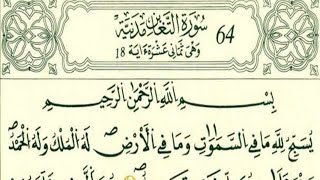 سُورَةُ التَّغَابُنِ مَدَنِيَّة 64
وَهِيَ ثَمَانِي عَشْرَةَ ءَايَة 18
بِسْمِ اللَّهِ الرَّحْمَٰنِ الرَّحِيمِ
يُسَبِّحُ لِلَّهِ مَا فِي السَّمَٰوَٰتِ وَمَا فِي الْأَرْضِ لَهُ الْمُلْكُ وَلَهُ الْحَمْدُ